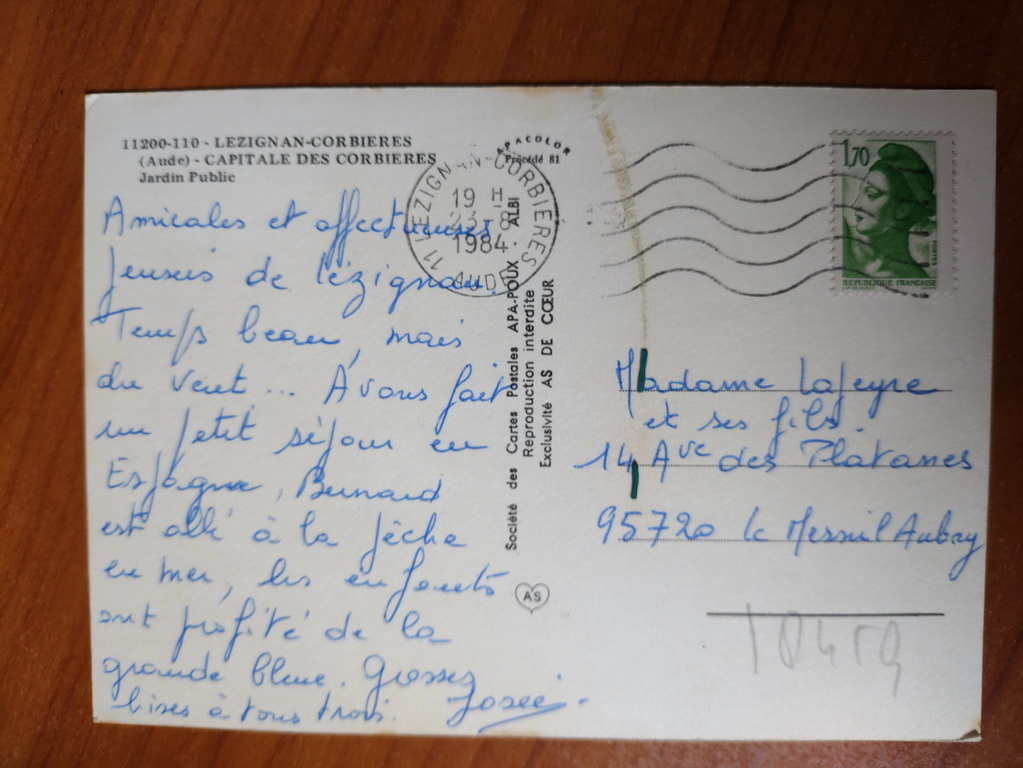 11200-110 - LEZIGNAN-CORBIERES
(Aude) - CAPITALE DES CORBIERES
Jardin Public
Amicales et affectueuses
pensées de Lézignan.
Temps beau, mais
du vent... Avons fait
un petit séjour en
Espagne, Bernard
est allé à la pêche
en mer, les enfants
ont profité de la
grande bleue. Grosses
bises à tous trois. Josée.
APACOLOR
Procédé 81
11 LEZIGNAN-CORBIERES
19 H
23-8
1984
AUDE
Société des Cartes Postales APA-POUX - ALBI
Reproduction interdite
Exclusivité AS DE CŒUR
AS
1,70
POSTES
REPUBLIQUE FRANÇAISE
Madame Lafeyre
et ses fils.
14 Ave des Platanes
95720 le Mesnil Aubry